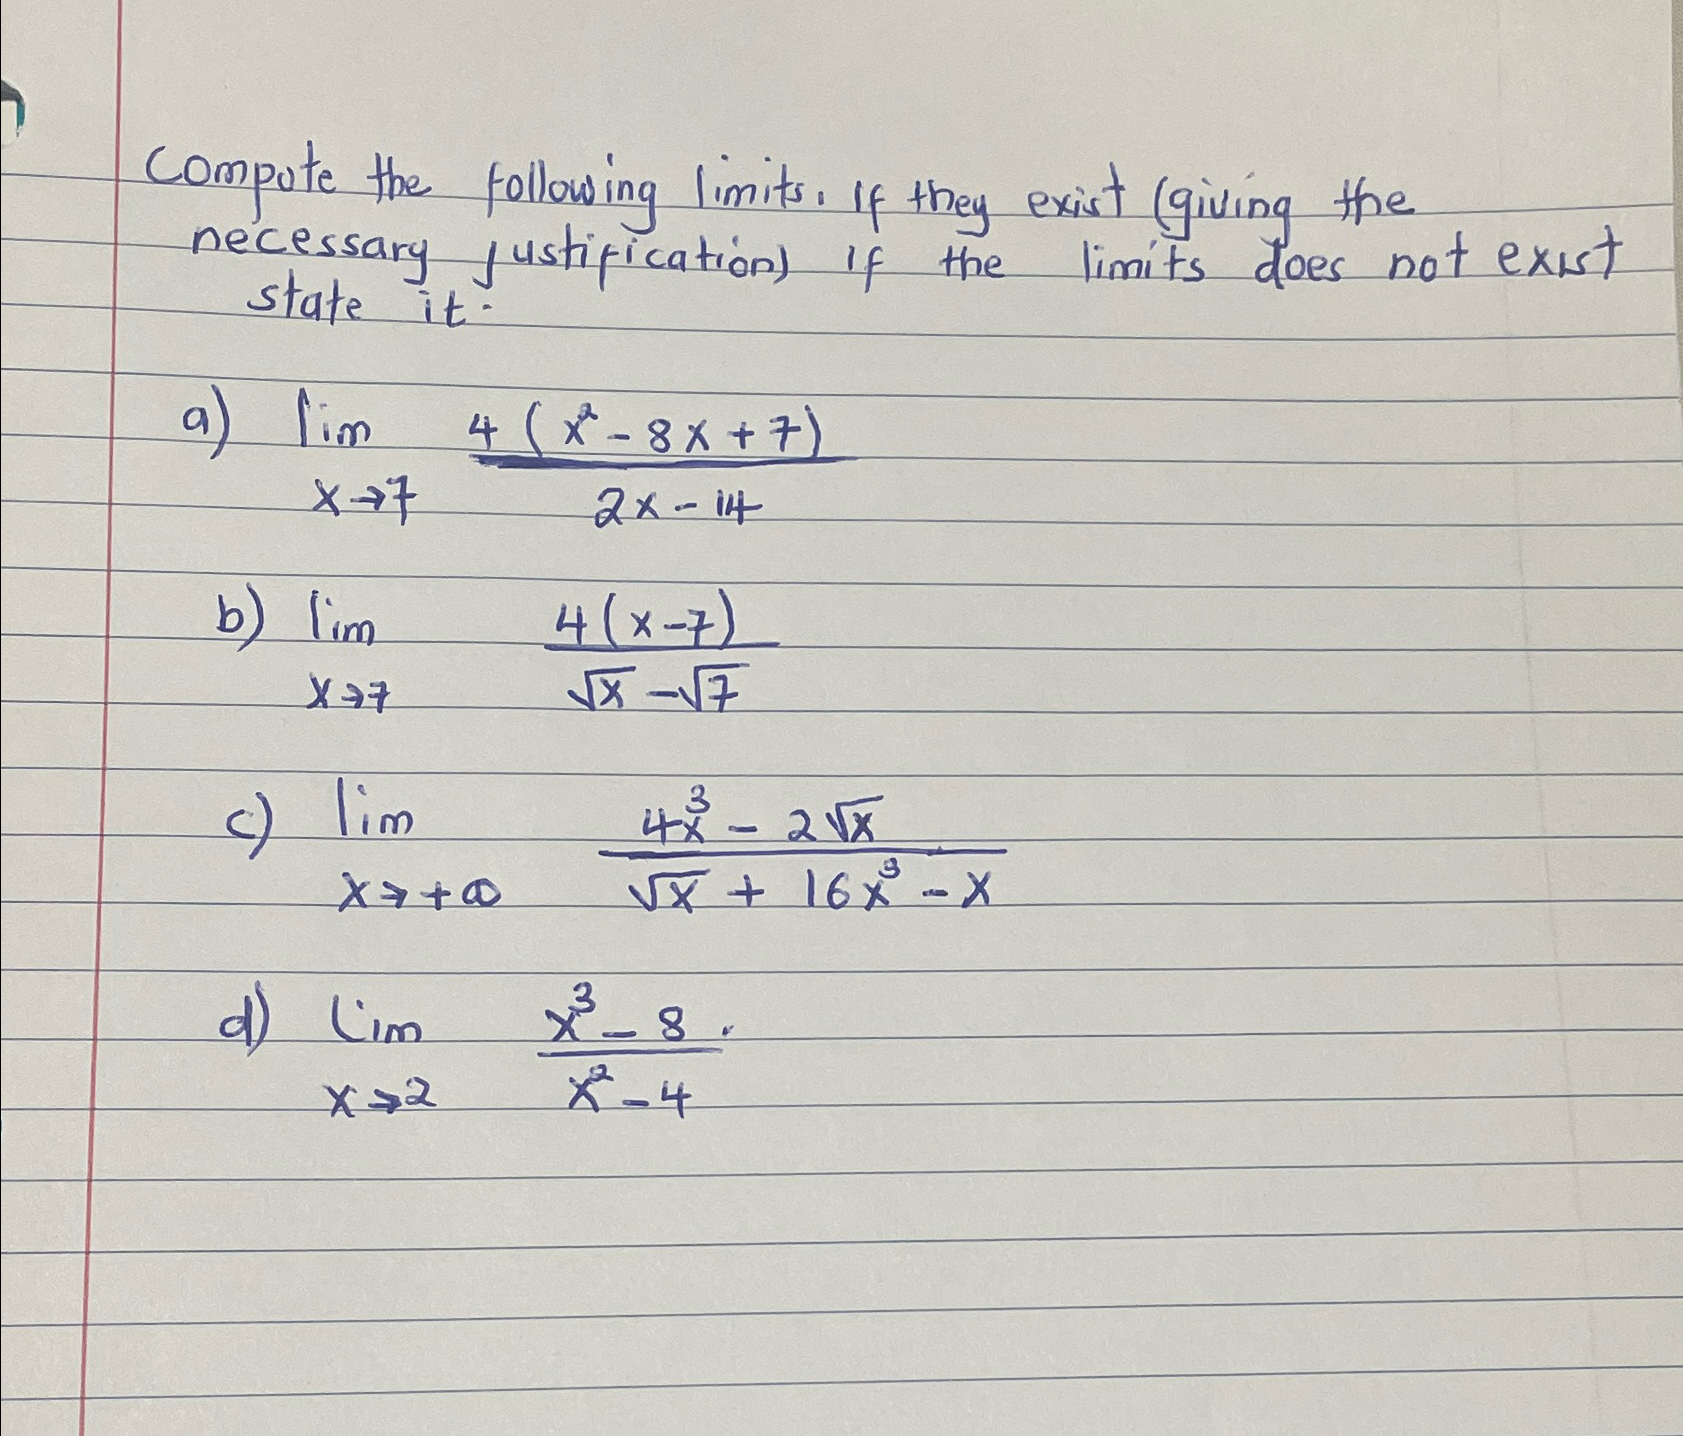 Compute the following limits. If they exist (giving the
necessary justification) If the limits does not exist
state it.
a) lim 4(x² - 8x + 7)
x→7 2x - 14
b) lim 4(x-7)
x→7 √x - √7
c) lim 4x³ - 2√x
x→+∞ √x + 16x³ - x
d) Lim x³ - 8.
x→2 x² - 4